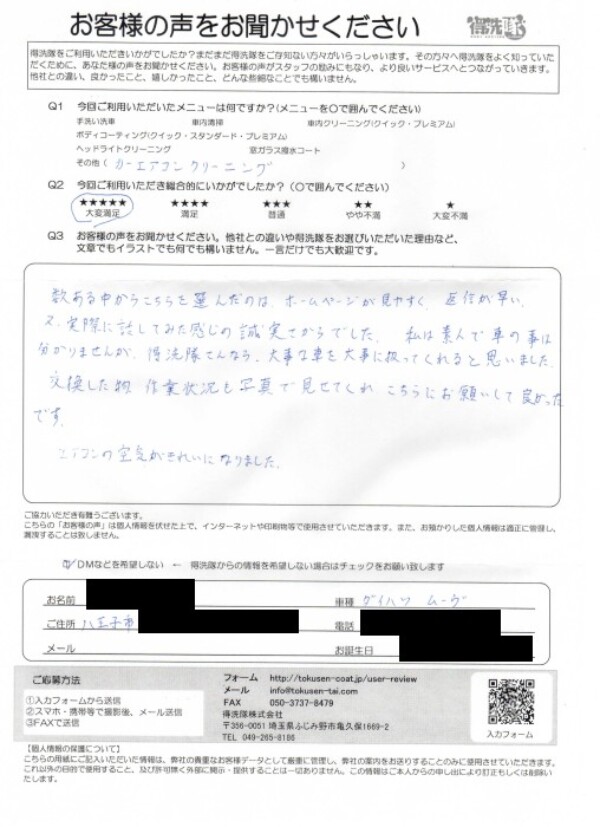 お客様の声をお聞かせください
得洗隊
得洗隊をご利用いただきいかがでしたか？まだまだ得洗隊をご存知ない方々がいらっしゃいます。その方々へ得洗隊をよく知っていた
だくために、あなた様の声をお聞かせください。お客様の声がスタッフの励みにもなり、より良いサービスへとつながっていきます。
他社との違い、良かったこと、嬉しかったこと、どんな些細なことでも構いません。
Q1 今回ご利用いただいたメニューは何ですか？(メニューを〇で囲んでください)
手洗い洗車 車内清掃 車内クリーニング(クイック・プレミアム)
ボディコーティング(クイック・スタンダード・プレミアム)
ヘッドライトクリーニング 窓ガラス撥水コート
その他( カーエアコンクリーニング )
Q2 今回ご利用いただき総合的にいかがでしたか？(〇で囲んでください)
★★★★★ ★★★★ ★★★ ★★ ★
大変満足 満足 普通 やや不満 大変不満
Q3 お客様の声をお聞かせください。他社との違いや得洗隊をお選びいただいた理由など、
文章でもイラストでも何でも構いません。一言だけでも大歓迎です。
数ある中からこちらを選んだのは、ホームページが見やすく、返信が早い、
又、実際に話してみた感じの誠実さからでした。 私は素人で車の事は
分かりませんが、得洗隊さんなら、大事な車を大事に扱ってくれると思いました。
交換した物、作業状況も写真で見せてくれ こちらにお願いして良かった
です。
エアコンの空気がきれいになりました。
ご協力いただき有難うございます。
こちらの「お客様の声」は個人情報を伏せた上で、インターネットや印刷物等で使用させていただきます。また、お預かりした個人情報は適正に管理し、
漏洩することは致しません。
DMなどを希望しない ← 得洗隊からの情報を希望しない場合はチェックをお願い致します
お名前 車種 ダイハツ ムーヴ
ご住所 八王子市 電話
メール お誕生日
ご応募方法
①入力フォームから送信
②スマホ・携帯等で撮影後、メール送信
③FAXで送信
フォーム http://tokusen-coat.jp/user-review
メール info@tokusen-tai.com
FAX 050-3737-8479
得洗隊株式会社
〒356-0051 埼玉県ふじみ野市亀久保1669-2
TEL 049-265-8186
入力フォーム
【個人情報の保護について】
こちらの用紙にご記入いただいた情報は、弊社の貴重なお客様データとして厳重に管理し、弊社の案内をお送りすることのみに使用させていただきます。
これ以外の目的で使用すること、及び許可無く外部に開示・提供することは一切ありません。この情報はご本人からの申し出により訂正もしくは削除い
たします。